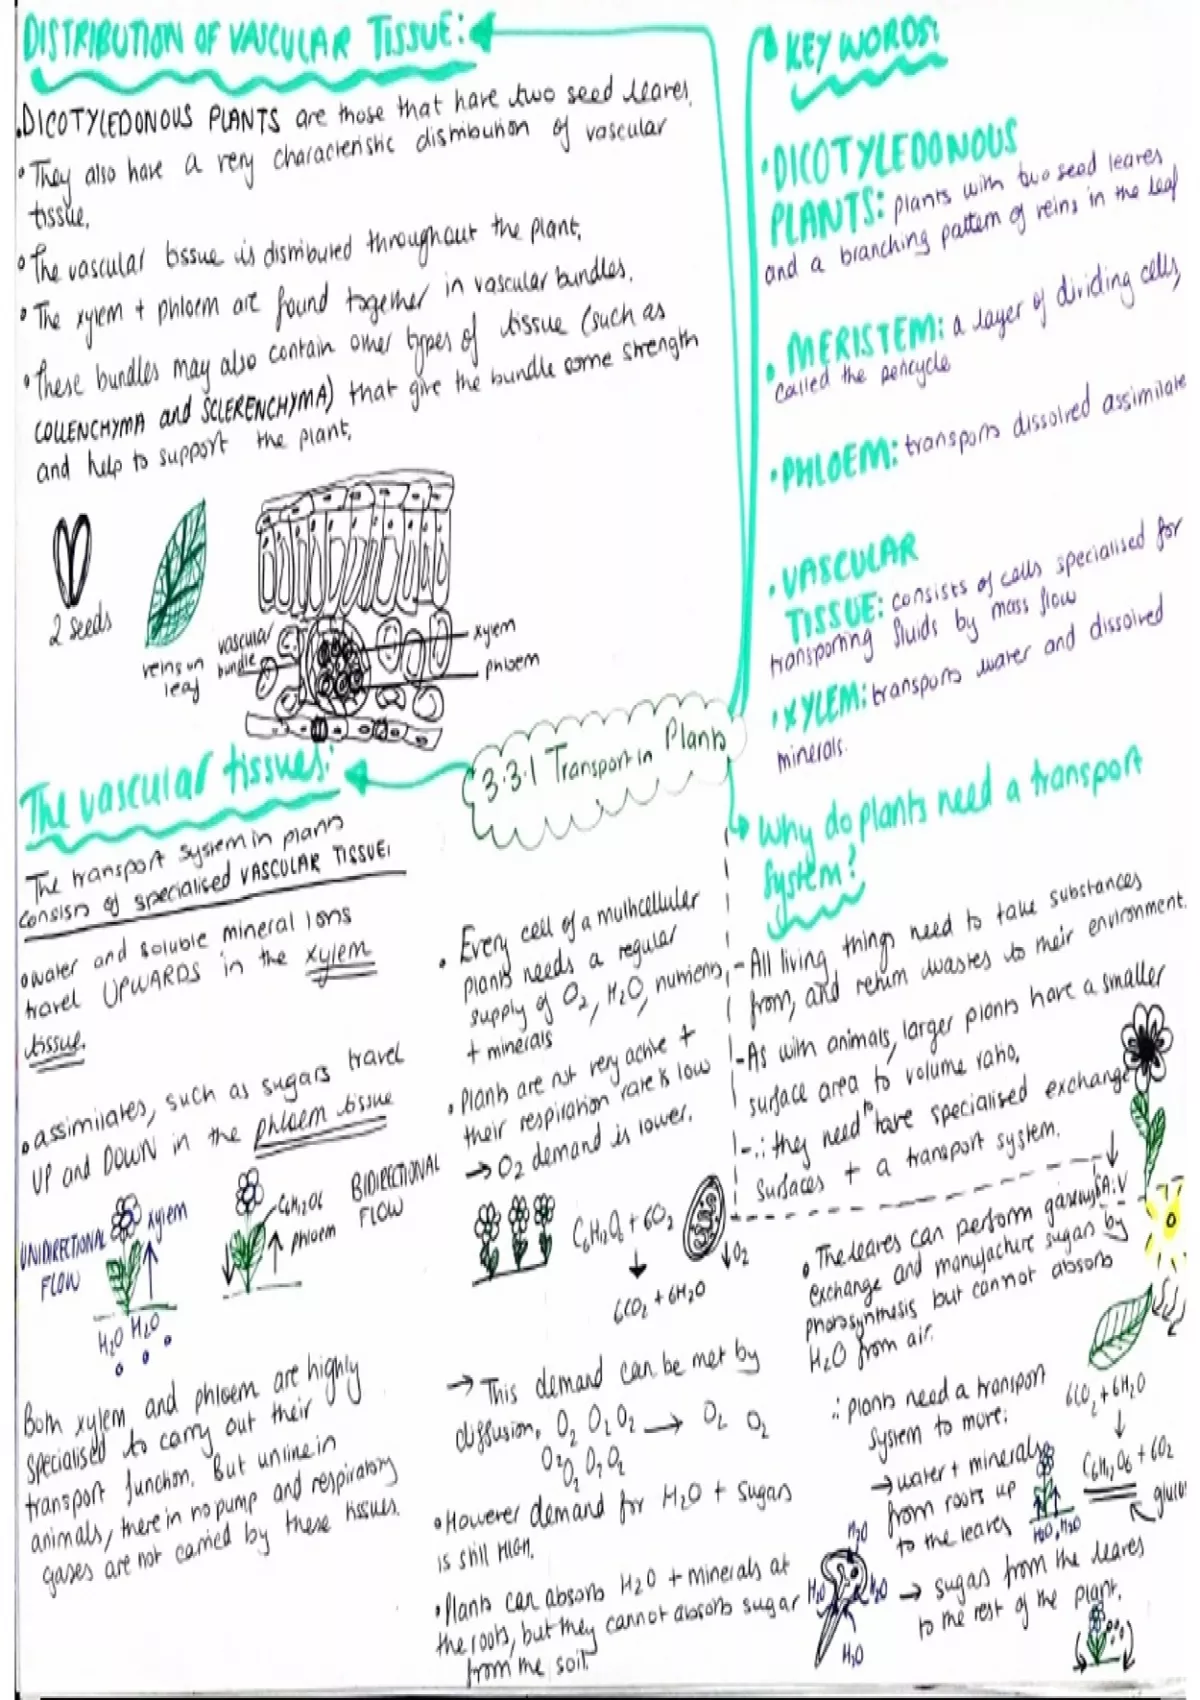 DISTRIBUTION OF VASCULAR TISSUE:
.DICOTYLEDONOUS PLANTS are those that have two seed leaves.
• They also have a very characteristic distribution of vascular
tissue.
• The vascular tissue is distributed throughout the plant.
• The xylem + phloem are found together in vascular bundles.
• These bundles may also contain other types of tissue (such as
COLLENCHYMA and SCLERENCHYMA) that give the bundle some strength
and help to support the plant.
2 seeds
veins on
leaf
vascular
bundle
xylem
phloem
KEY WORDS:
• DICOTYLEDONOUS
PLANTS: plants with two seed leaves
and a branching pattern of veins in the leaf
• MERISTEM: a layer of dividing cells,
called the pericycle
• PHLOEM: transports dissolved assimilate
• VASCULAR
TISSUE: consists of cells specialised for
transporting fluids by mass flow
• XYLEM: transports water and dissolved
minerals.
3.3.1 Transport in Plants
The vascular tissues:
The transport system in plants
consists of specialised VASCULAR TISSUE.
• water and soluble mineral ions
travel UPWARDS in the xylem
tissue.
• assimilates, such as sugars travel
UP and DOWN in the phloem tissue
UNIDIRECTIONAL
FLOW
xylem
H2O H2O
C6H12O6
phloem
BIDIRECTIONAL
FLOW
Both xylem and phloem are highly
specialised to carry out their
transport function. But unlike in
animals, there in no pump and respiratory
gases are not carried by these tissues.
• Every cell of a multicellular
plants needs a regular
supply of O2, H2O, nutrients,
+ minerals
• Plants are not very active +
their respiration rate is low
→ O2 demand is lower.
C6H12O6 + 6O2
↓
6CO2 + 6H2O
↓O2
→ This demand can be met by
diffusion. O2 O2 O2 → O2 O2
O2 O2 O2 O2
• However demand for H2O + sugars
is still HIGH.
• Plants can absorb H2O + minerals at
the roots, but they cannot absorb sugar
from the soil.
H2O
H2O
H2O
H2O
Why do plants need a transport
system?
- All living things need to take substances
from, and return wastes to their environment.
- As with animals, larger plants have a smaller
surface area to volume ratio.
- ∴ they need to have specialised exchange
surfaces + a transport system.
↓ SA:V
• The leaves can perform gaseous
exchange and manufacture sugar by
photosynthesis but cannot absorb
H2O from air.
∴ plants need a transport
system to move:
→ water + minerals
from roots up
to the leaves
H2O, H2O
6CO2 + 6H2O
↓
C6H12O6 + 6O2
→ sugars from the leaves
to the rest of the plant.